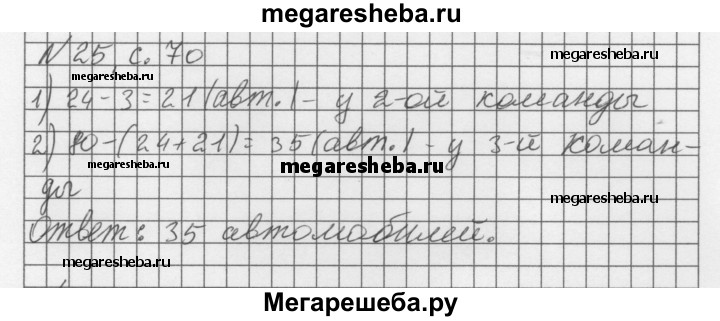 megaresheba.ru
N 25, с. 70
megaresheba.ru
megaresheba.ru
1) 24-3=21(авт.)- у 2-ой команды
2) 80-(24+21)= 35(авт.)- у 3-й коман-
megaresheba.ru
ды
megaresheba.ru
Ответ: 35 автомобилей.
megaresheba.ru
Мегарешеба.ру